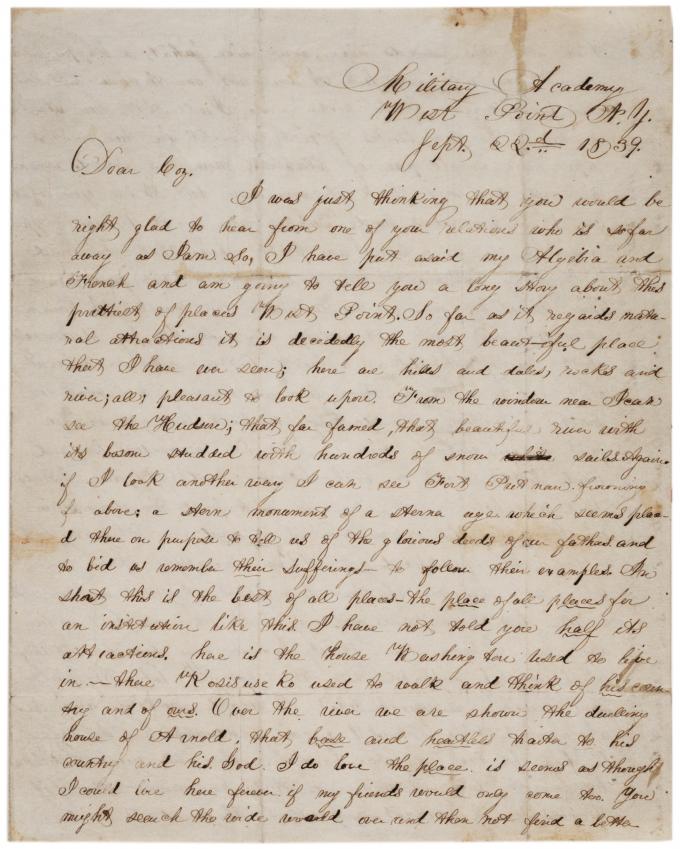 Military Academy
West Point N.Y.
Sept. 22d 1839.
Dear Coz.
I was just thinking that you would be
right glad to hear from one of your relations who is so far
away as I am so, I have put asaid my Algebra and
French and am going to tell you a long story about this
prettiest of places West Point. So far as it regards natu-
ral attractions it is decidedly the most beautiful place
that I have ever seen; here are hills and dales, rocks and
river; all pleasant to look upon. From the window near I can
see the Hudson; that far famed, that beautiful river with
its bosom studded with hundreds of snow sails. Again
if I look another way I can see Fort Putnan frowning
above; a stern monument of a sterner age which seems plac-
d there on purpose to tell us of the glorious deeds of our fathers and
to bid us remember their sufferings – to follow their examples. In
short this is the best of all places – the place of all places for
an institution like this. I have not told you half its
attractions. here is the house Washington used to live
in – there Kosisuseko used to walk and think of his coun-
try and of ours. Over the river we are shown the duelling
house of Arnold, that base and heartless traiter to his
country and his God. I do love the place. is seems as though
I could live here forever if my friends would only come too. You
might search the wide world over and then not find a better